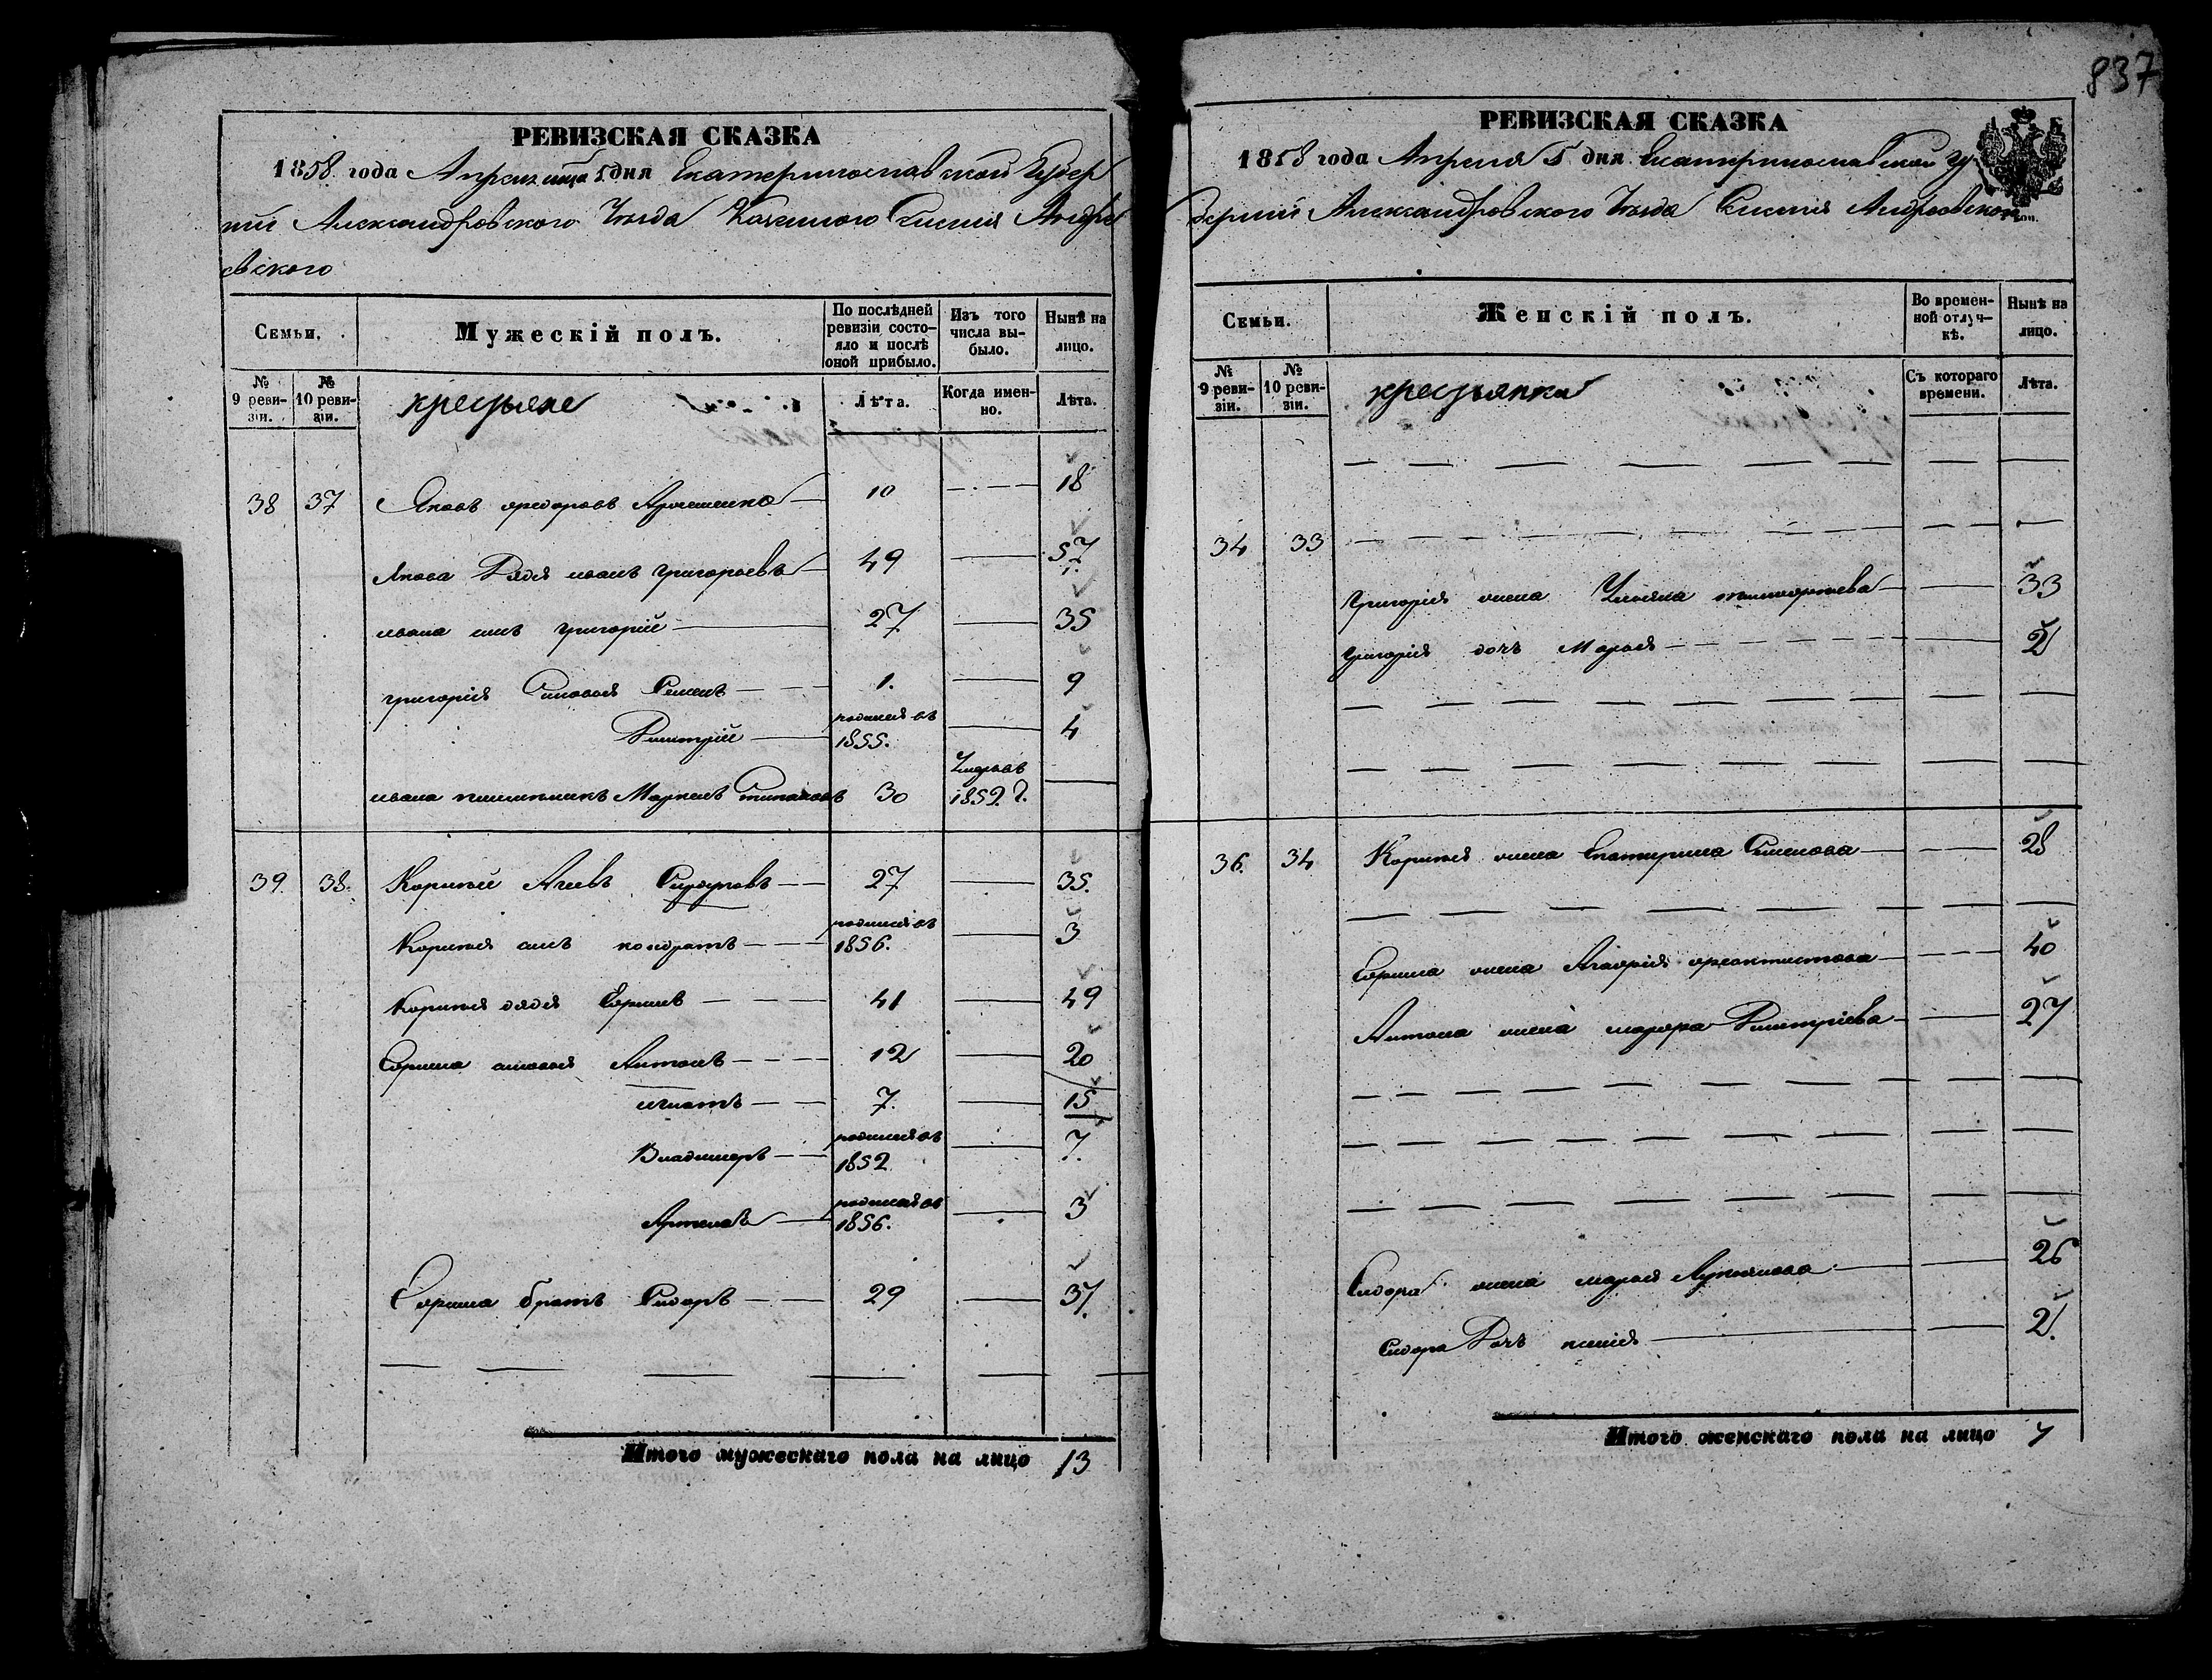 837
РЕВИЗСКАЯ СКАЗКА
1858 года Апреля месяца 5 дня Екатеринославской Губер
нии Александровского Уезда Казенного Селения Андре
евского
Семьи.
Мужескій полъ.
По послѣдней ревизіи состо-
яло и послѣ оной прибыло.
Изъ того числа вы-
было.
Нынѣ на лицо.
№ 9 реви-
зіи.
№ 10 реви-
зіи.
крестьяне
Лѣта.
Когда имен-
но.
Лѣта.
38 37 Яковъ Федоровъ 10 18
Якова дядя Иванъ Григорьевъ 49 57
Ивана сынъ Григорій 27 35
Григорія сыновья Семенъ 1. 9
Дмитрій родился въ 1855. 4
Ивана Степановъ 30 Умеръ въ 1852 г.
39. 38. Корней 27 35.
Корнея сынъ Кондратъ родился въ 1856. 3
Корнея дядя Ефимъ 41 49
Ефима сыновья Антонъ 12 20
Игнатъ 7. 15
Владимеръ родился въ 1852 7.
родился въ 1856. 3
Ефима братъ Сидоръ 29 37.
Итого мужескаго пола на лицо 13
РЕВИЗСКАЯ СКАЗКА
1858 года Апреля 5 дня Екатеринославской Гу
берніи Александровского Уезда Селения Андреевского
Семьи.
Женскій полъ.
Во времен-
ной отлуч-
кѣ.
Нынѣ на лицо.
№ 9 реви-
зіи.
№ 10 реви-
зіи.
крестьянки
Съ котораго времени.
Лѣта.
34 33
Григорія жена Ульяна 33
Григорія дочь Марья 2
36. 34 Корнея жена Екатерина Семенова 28
Ефима жена Феоктистова 40
Антона жена Дмитріева 27
Сидора жена Марья Лукьянова 26
Сидора дочь 2.
Итого женскаго пола на лицо 7